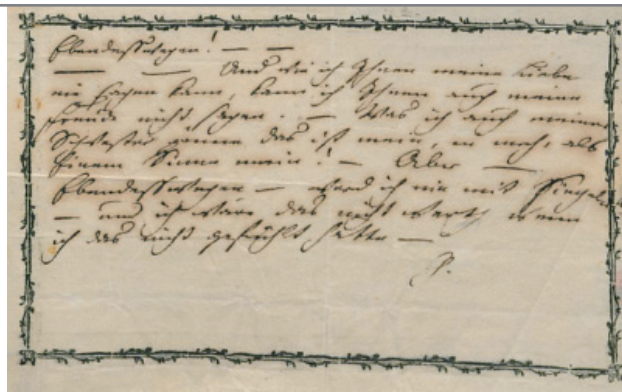 Ebendeßwegen! — —
— — Und wie ich Ihnen meine Liebe
nie sagen kann, kann ich Ihnen auch meine
Freude nicht sagen. — Was ich auch meiner
Schwester gönne das ist mein, in mehr, als
Einem Sinne mein! — Aber —
Ebendeßwegen — werd ich nie mit
— und ich wäre das nicht werth wenn
ich das nicht gefühlt hätte —